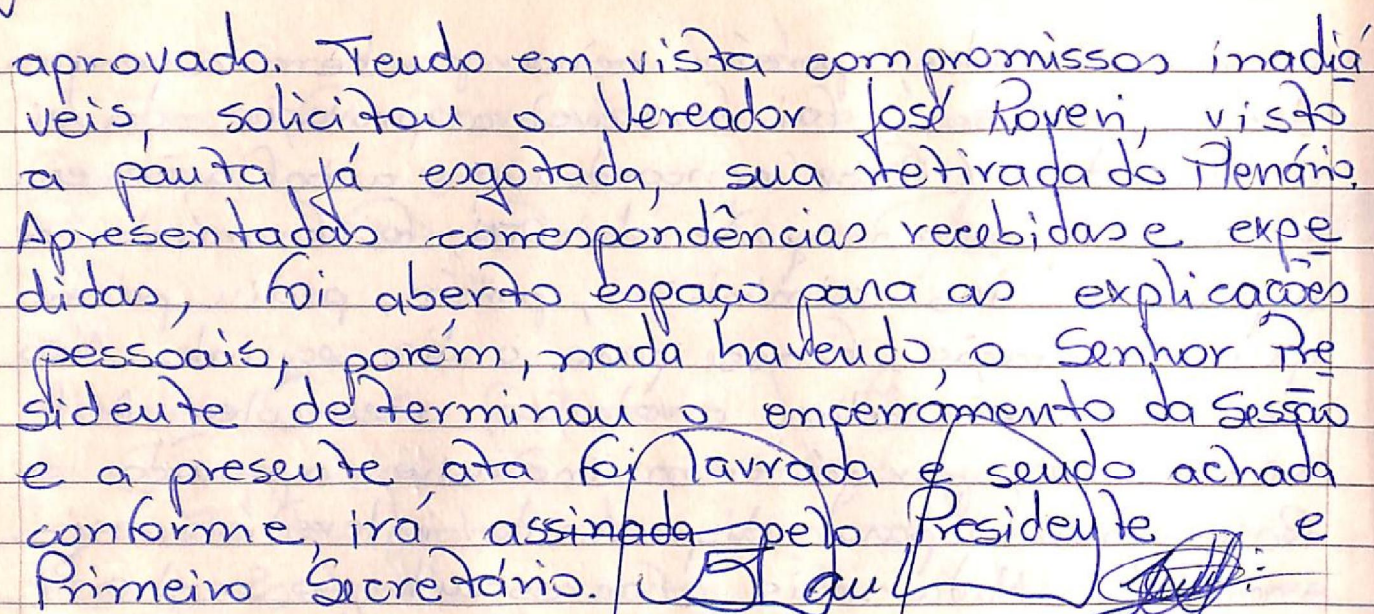 aprovado. Tendo em vista compromissos inadiá
veis, solicitou o Vereador José Roveri, visto
a pauta já esgotada, sua retirada do Plenário.
Apresentadas correspondências recebidas e expe
didas, foi aberto espaço para as explicações
pessoais, porém, nada havendo, o Senhor Pre
sidente determinou o encerramento da Sessão
e a presente ata foi lavrada e sendo achada
conforme, irá assinada pelo Presidente e
Primeiro Secretário.